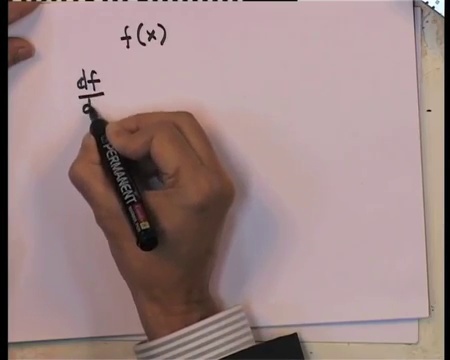 f(x)
df
d
PERMANENT